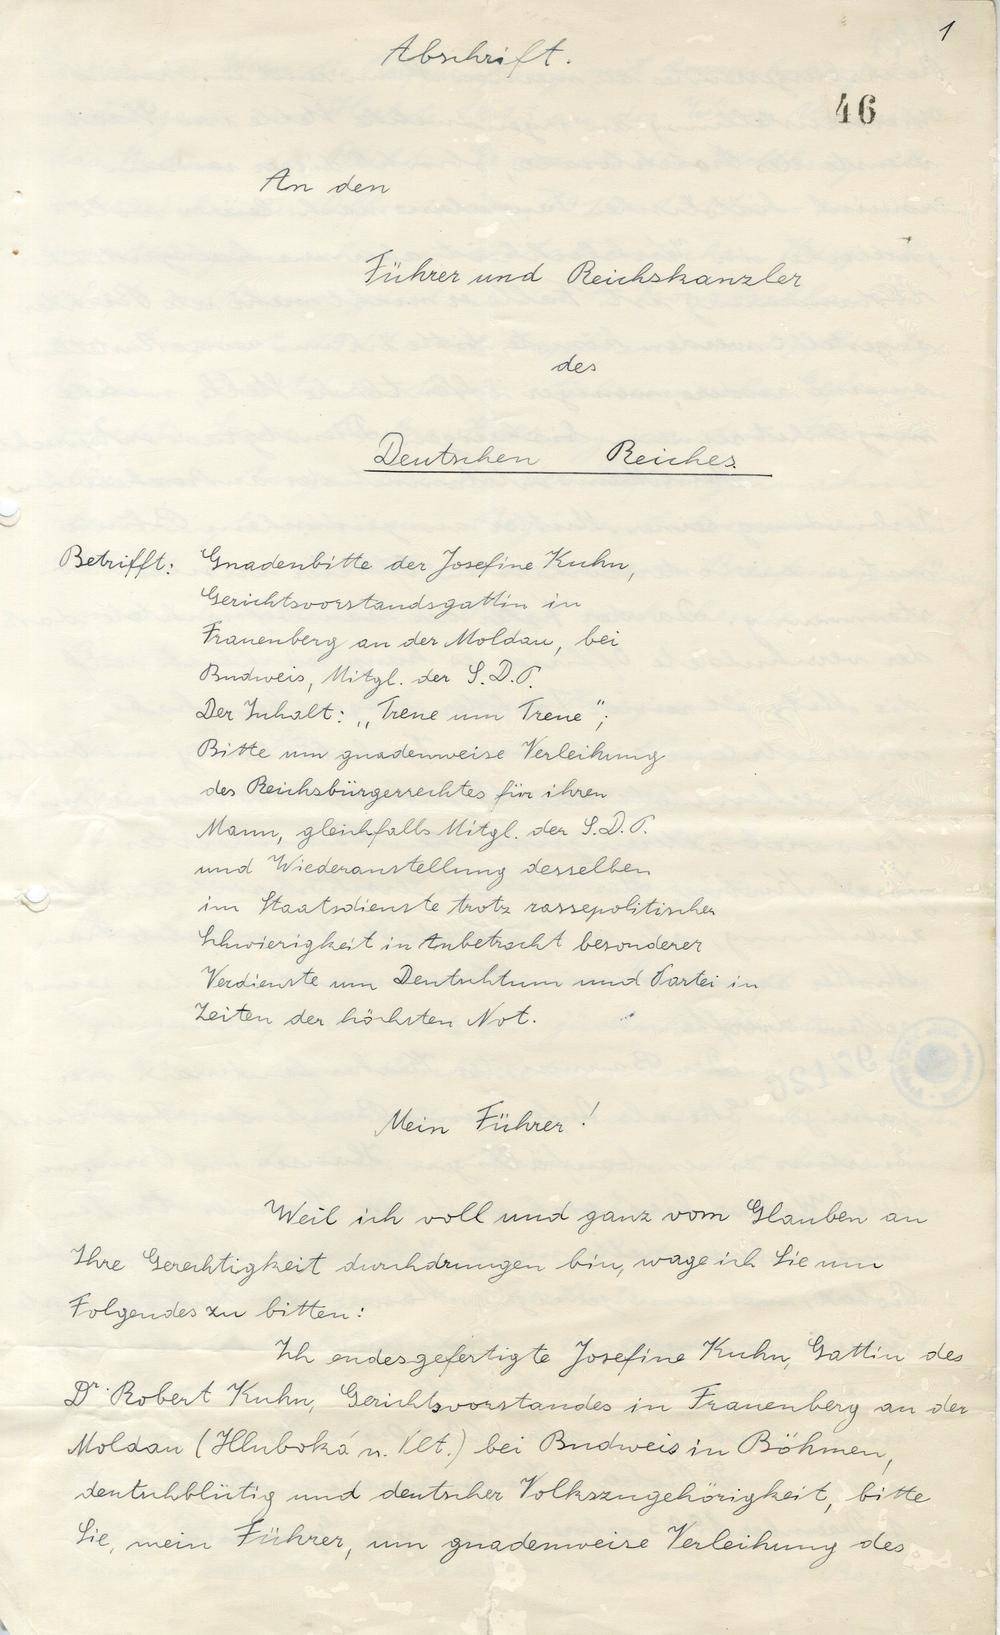 1
Abschrift.
46
An den
Führer und Reichskanzler
des
Deutschen Reiches.
Betrifft: Gnadenbitte der Josefine Kuhn,
Gerichtsvorstandsgattin in
Frauenberg an der Moldau, bei
Budweis, Mitgl. der S.D.P.
Der Inhalt: „Treue um Treue";
Bitte um gnadenweise Verleihung
des Reichsbürgerrechtes für ihren
Mann, gleichfalls Mitgl. der S.D.P.
und Wiederanstellung desselben
im Staatsdienste trotz rassepolitischer
Schwierigkeit in Anbetracht besonderer
Verdienste um Deutschtum und Partei in
Zeiten der höchsten Not.
Mein Führer!
Weil ich voll und ganz vom Glauben an
Ihre Gerechtigkeit durchdrungen bin, wage ich Sie um
Folgendes zu bitten:
Ich endesgefertigte Josefine Kuhn, Gattin des
Dr. Robert Kuhn, Gerichtsvorstandes in Frauenberg an der
Moldau (Hluboká n. Vlt.) bei Budweis in Böhmen,
deutschblütig und deutscher Volkszugehörigkeit, bitte
Sie, mein Führer, um gnadenweise Verleihung des